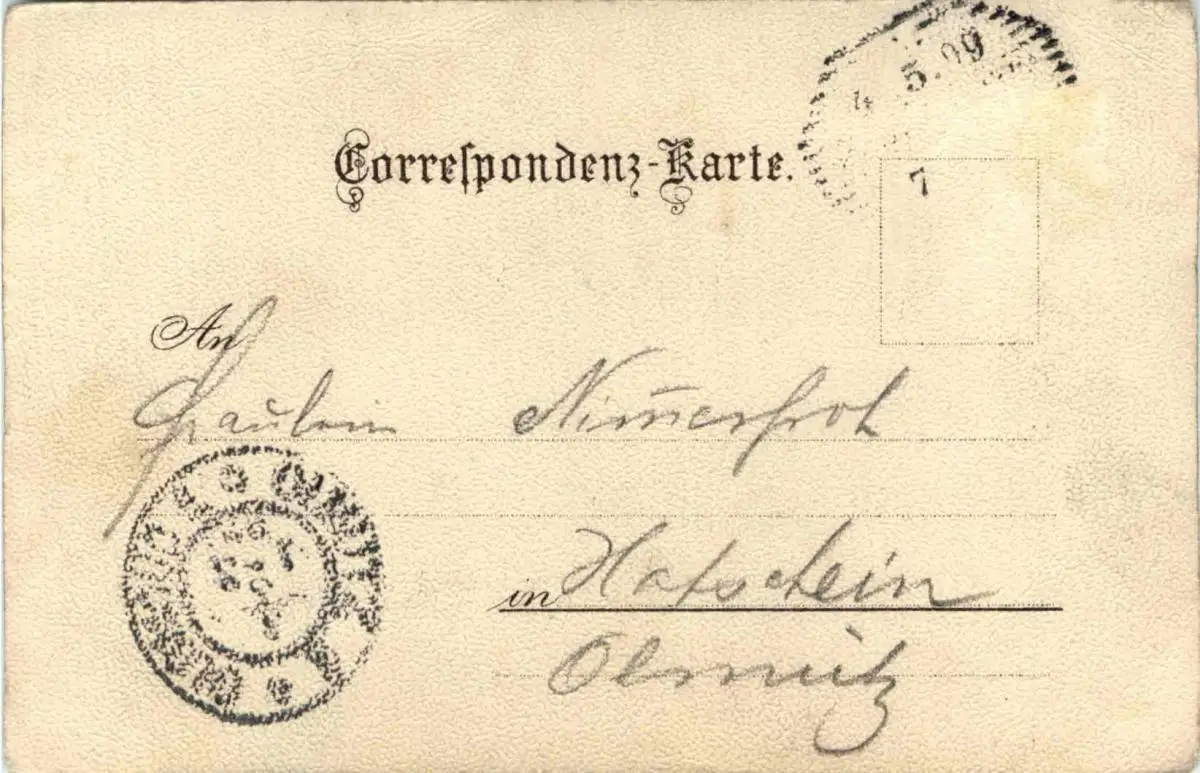 4 5.99
7
Correspondenz-Karte.
An
Fräulein Nim̄erfroh
in Hatschein
Olmütz